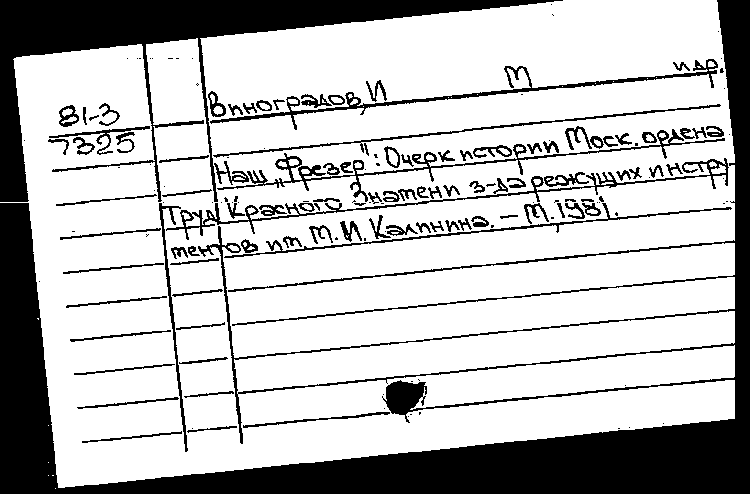 81-3
7325
Виноградов, И М и др.
Наш „Фрезер": Очерк истории Моск. ордена
Труд. Красного Знамени з-да режущих инстру-
ментов им. М. И. Калинина. – М., 1981.